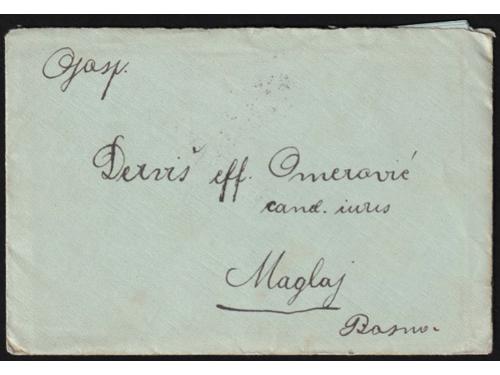 Gosp.
Derviš eff. Omerović
cand. iuris
Maglaj
Bosna.